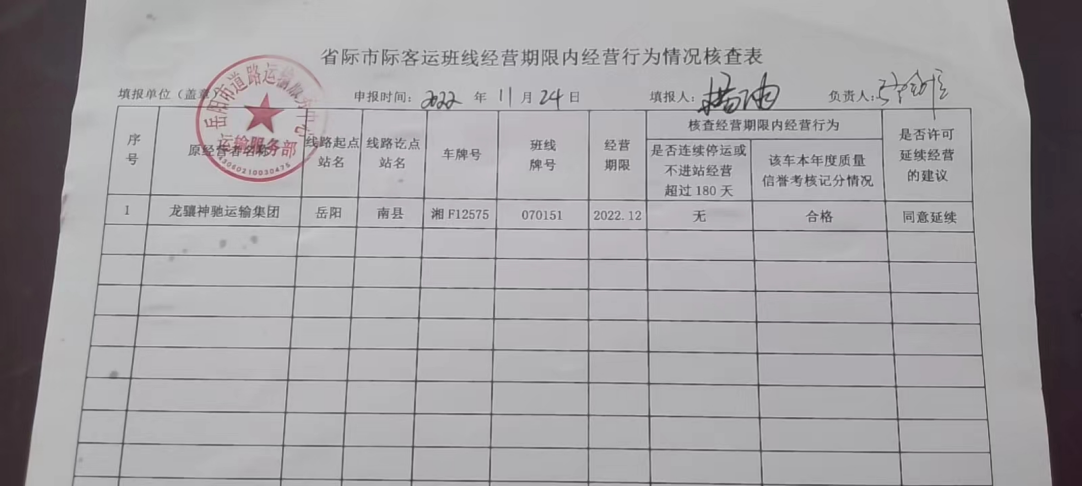 省际市际客运班线经营期限内经营行为情况核查表
填报单位（盖章） 申报时间：2022 年 11 月 24 日 填报人： 负责人：
岳阳市道路运输服务中心
运输服务部
43060210030475
序号 原经营者名称 线路起点站名 线路讫点站名 车牌号 班线牌号 经营期限 核查经营期限内经营行为 是否许可延续经营的建议
是否连续停运或不进站经营超过 180 天 该车本年度质量信誉考核记分情况
1 龙骧神驰运输集团 岳阳 南县 湘 F12575 070151 2022.12 无 合格 同意延续